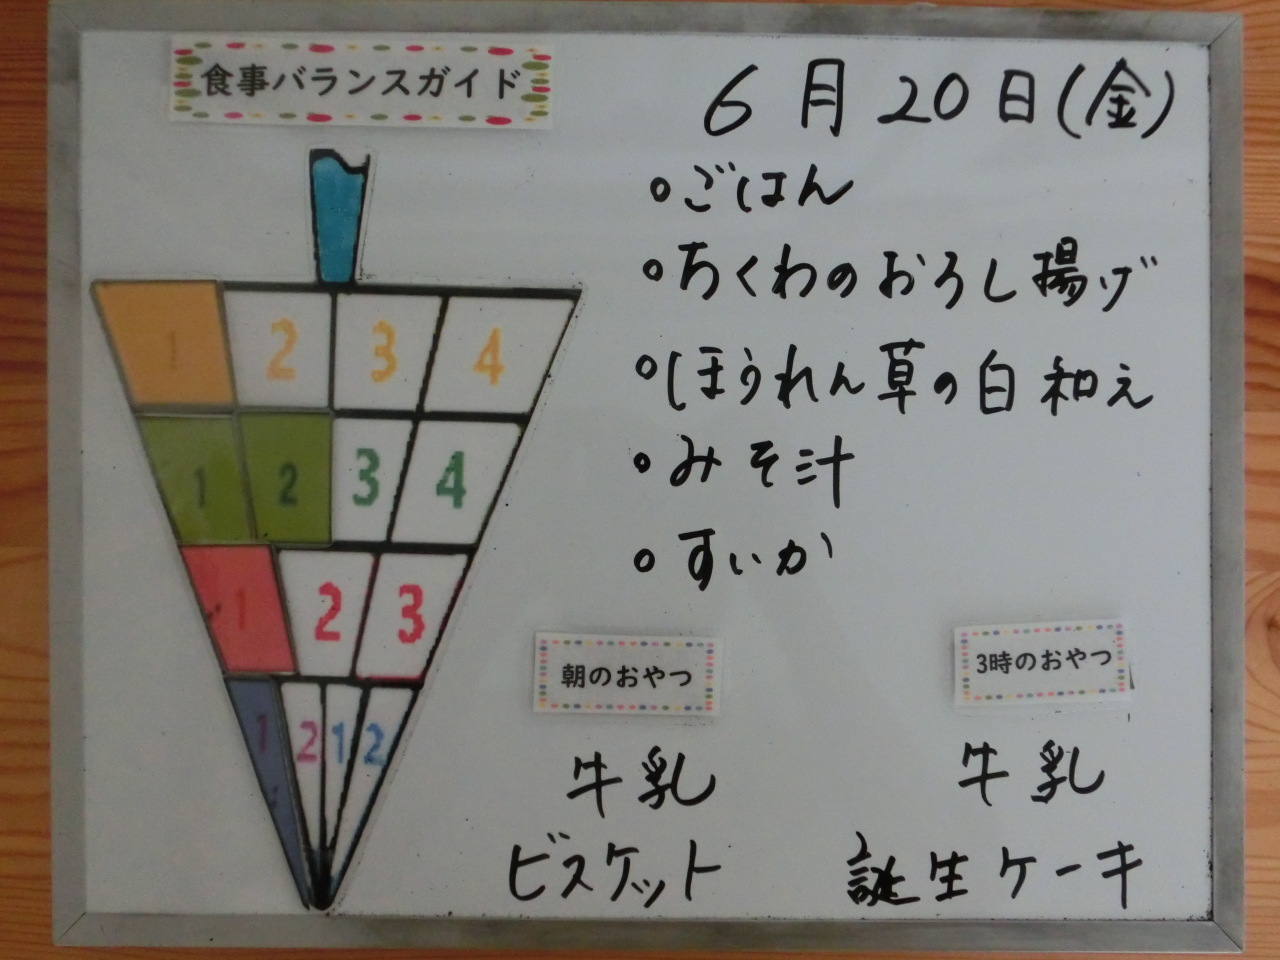 食事バランスガイド
6月20日(金)
○ごはん
○ちくわのおろし揚げ
○ほうれん草の白和え
○みそ汁
○すいか
1 2 3 4
1 2 3 4
1 2 3
1 2 1 2
朝のおやつ
牛乳
ビスケット
3時のおやつ
牛乳
誕生ケーキ